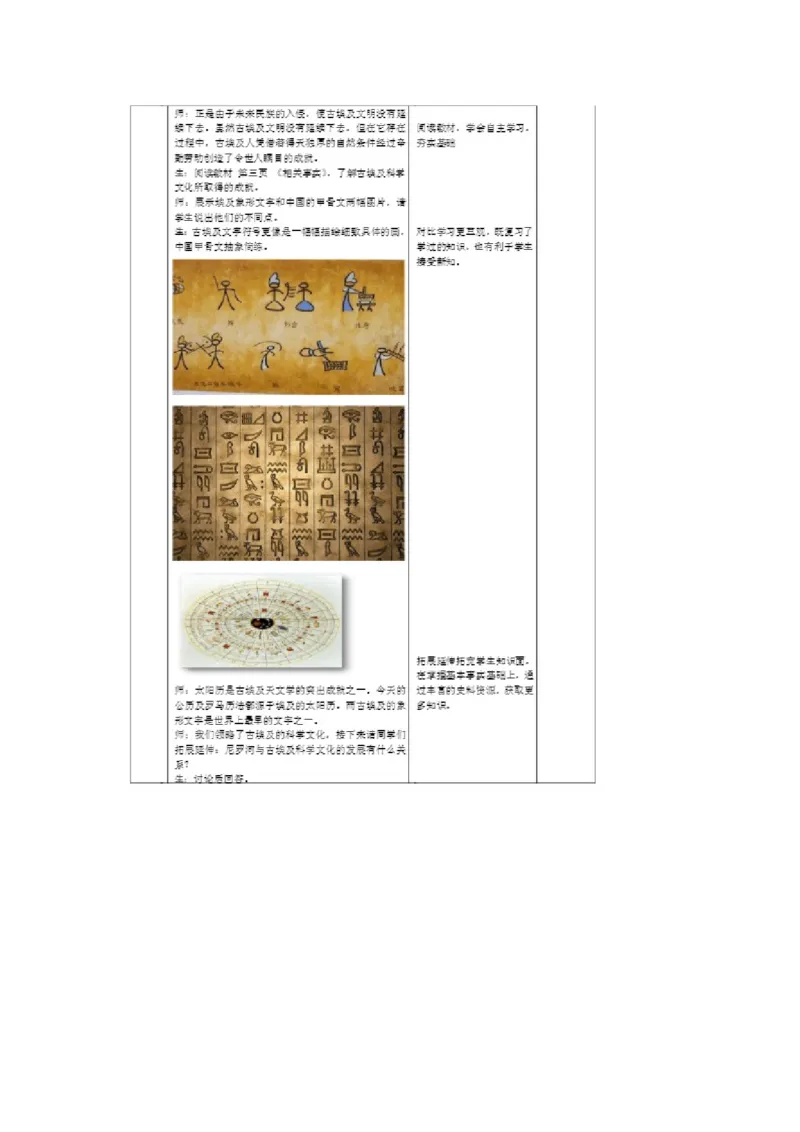 师：正是由于外来民族的入侵，使古埃及文明没有延
续下去。虽然古埃及文明没有延续下去，但在它存在
过程中，古埃及人凭借着得天独厚的自然条件经过辛
勤劳动创造了令世人瞩目的成就。
生：阅读教材 第三页 《相关事实》，了解古埃及科学
文化所取得的成就。
师：展示埃及象形文字和中国的甲骨文两幅图片，请
学生说出他们的不同点。
生：古埃及文字符号更像是一幅幅描绘细致具体的画，
中国甲骨文抽象简练。
师：太阳历是古埃及天文学的突出成就之一。今天的
公历及罗马历法都源于埃及的太阳历。而古埃及的象
形文字是世界上最早的文字之一。
师：我们领略了古埃及的科学文化，接下来请同学们
拓展延伸：尼罗河与古埃及科学文化的发展有什么关
系？
生：讨论后回答。
阅读教材，学会自主学习，
夯实基础
对比学习更直观，既复习了
学过的知识，也有利于学生
接受新知。
拓展延伸拓宽学生知识面，
在掌握基本事实基础上，通
过丰富的史料资源，获取更
多知识。